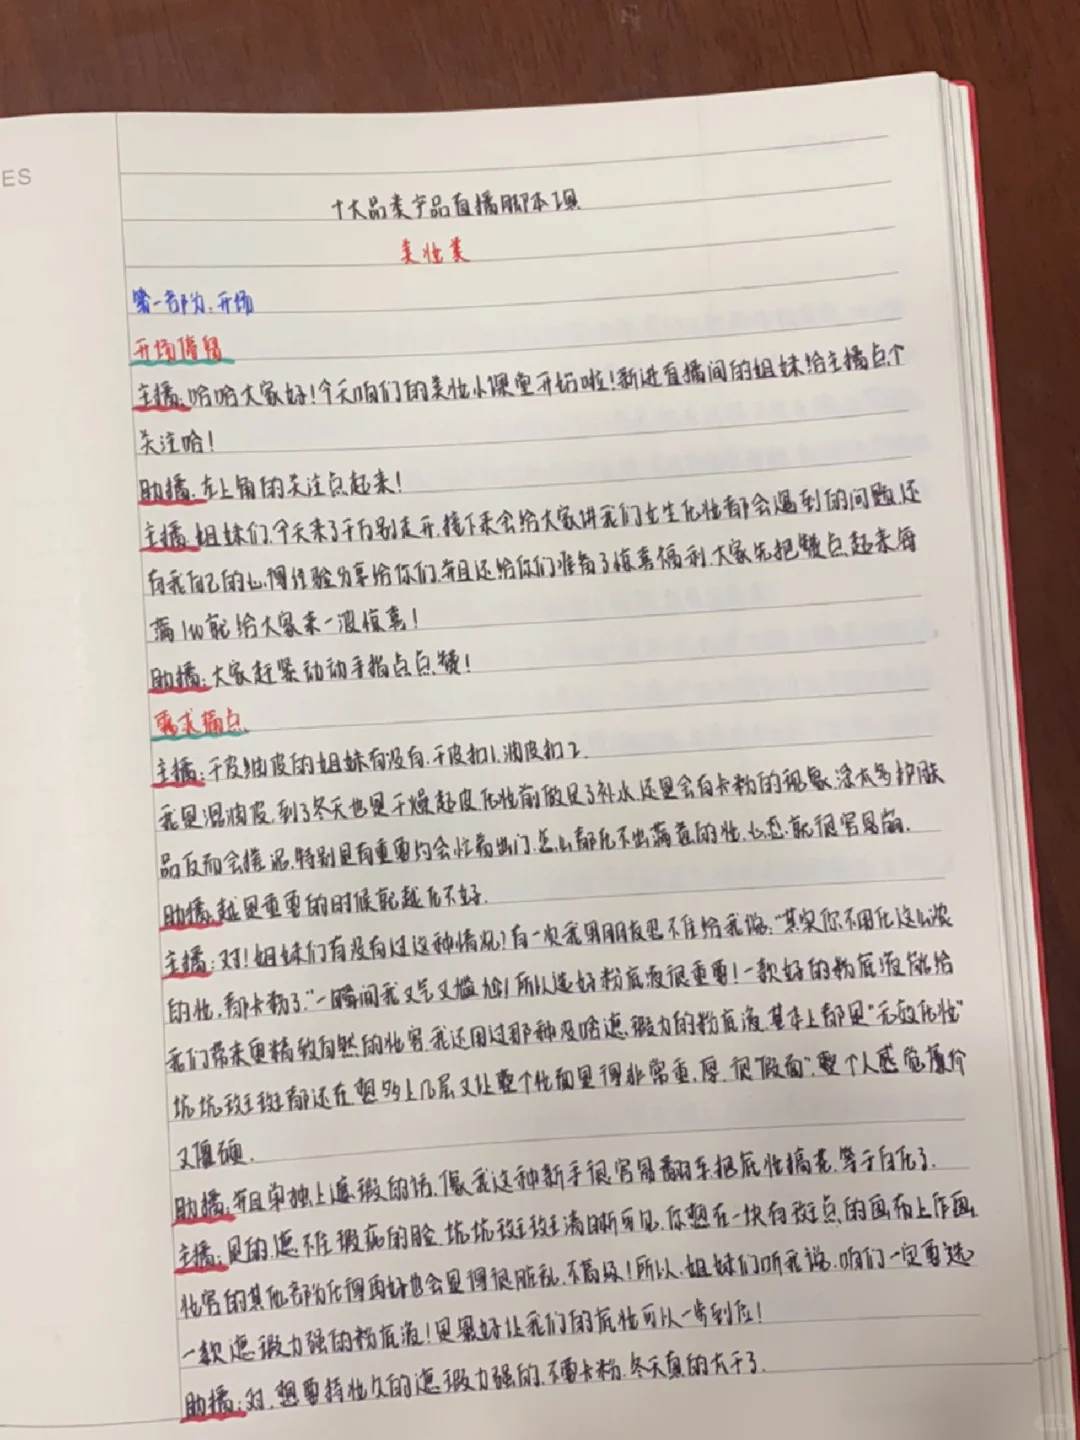 ES
十大品类产品直播脚本1项
美妆类
第一部分.开场
开场停留
主播:哈哈大家好!今天咱们的美妆小课堂开始啦!新进直播间的姐妹给主播点个
关注哈!
助播:左上角的关注点起来!
主播:姐妹们.今天来了千万别走开.接下来会给大家讲我们女生化妆都会遇到的问题.还
有我自己的心得经验分享给你们.并且还给你们准备了惊喜福利.大家先把赞点起来每
满1w就给大家来一波惊喜!
助播:大家赶紧动动手指点点赞!
需求痛点
主播:干皮油皮的姐妹有没有.干皮扣1.油皮扣2.
我是混油皮.到了冬天也是干燥起皮化妆前做足了补水.还是会有卡粉的现象.涂太多护肤
品反而会搓泥.特别是有重要约会忙着出门.怎么都化不出满意的妆.心态.就很容易崩.
助播:越是重要的时候就越化不好.
主播:对!姐妹们有没有过这种情况?有一次我男朋友忍不住给我说:"其实你不用化这么浓
的妆,都卡粉了."一瞬间我又气又尴尬!所以选好粉底液很重要!一款好的粉底液能给
我们带来更精致自然的妆容.我还用过那种没啥遮瑕力的粉底液.基本上都是"无效化妆"
坑坑斑斑都还在想多上几层又让整个妆面显得非常重.厚.很"假面".整个人感觉廉价
又僵硬.
助播:并且单独上遮瑕的话.像我这种新手很容易翻车.把底妆搞花.等于白化了.
主播:是的.遮不住瑕疵的脸.坑坑斑斑清晰可见.你想在一块有斑点的画布上作画.
妆容的其他部分化得再好也会显得很脏乱.不高级!所以.姐妹们听我说.咱们一定要选
一款遮瑕力强的粉底液!是最好让我们的底妆可以一步到位!
助播:对.想要持妆久的遮瑕力强的.不要卡粉.冬天真的太干了.